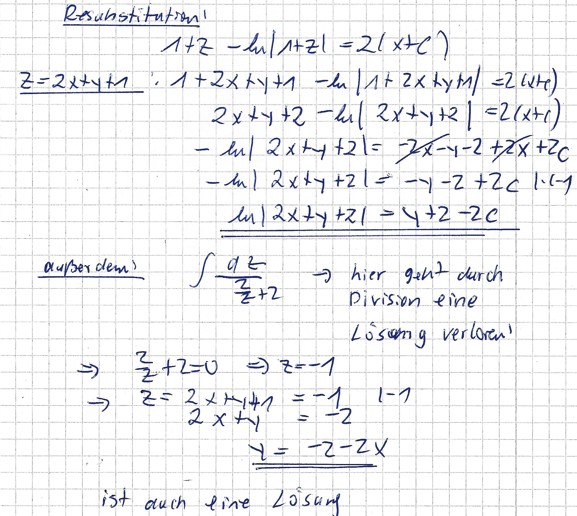 Resubstitution!
1+z - ln|1+z| = 2(x+c)
z=2x+y+1: 1+2x+y+1 - ln|1+2x+y+1| = 2(x+c)
2x+y+2 - ln|2x+y+2| = 2(x+c)
- ln|2x+y+2| = -2x-y-2+2x+2c
- ln|2x+y+2| = -y-2+2c |·(-1
ln|2x+y+2| = y+2-2c
außerdem: ∫ dz / (2/z + 2) → hier geht durch
Division eine
Lösung verloren!
⇒ 2/z + 2 = 0 ⇒ z=-1
→ z = 2x+y+1 = -1 |-1
2x+y = -2
y = -2-2x
ist auch eine Lösung